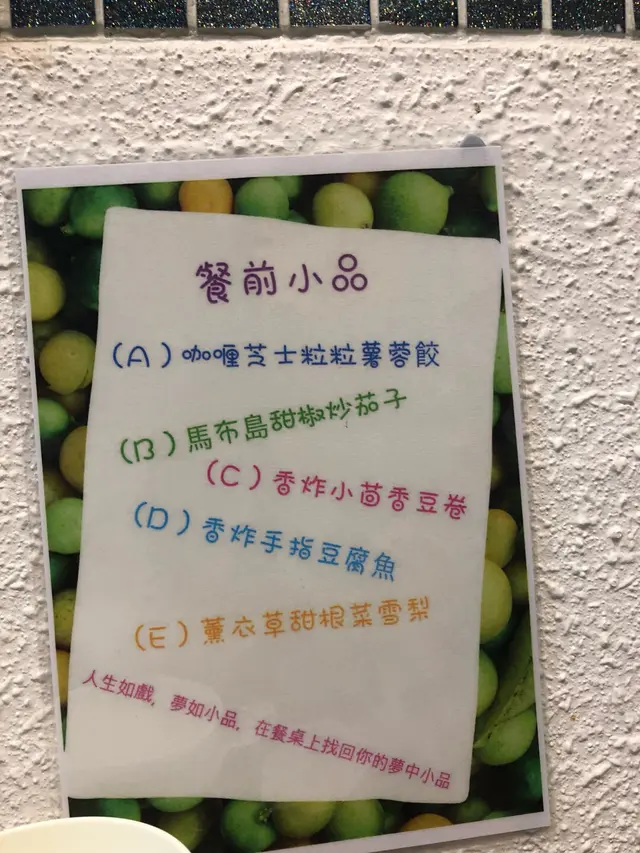 餐前小品
(A)咖喱芝士粒粒薯蓉餃
(B)馬布島甜椒炒茄子
(C)香炸小茴香豆卷
(D)香炸手指豆腐魚
(E)薰衣草甜根菜雪梨
人生如戲，夢如小品，在餐桌上找回你的夢中小品